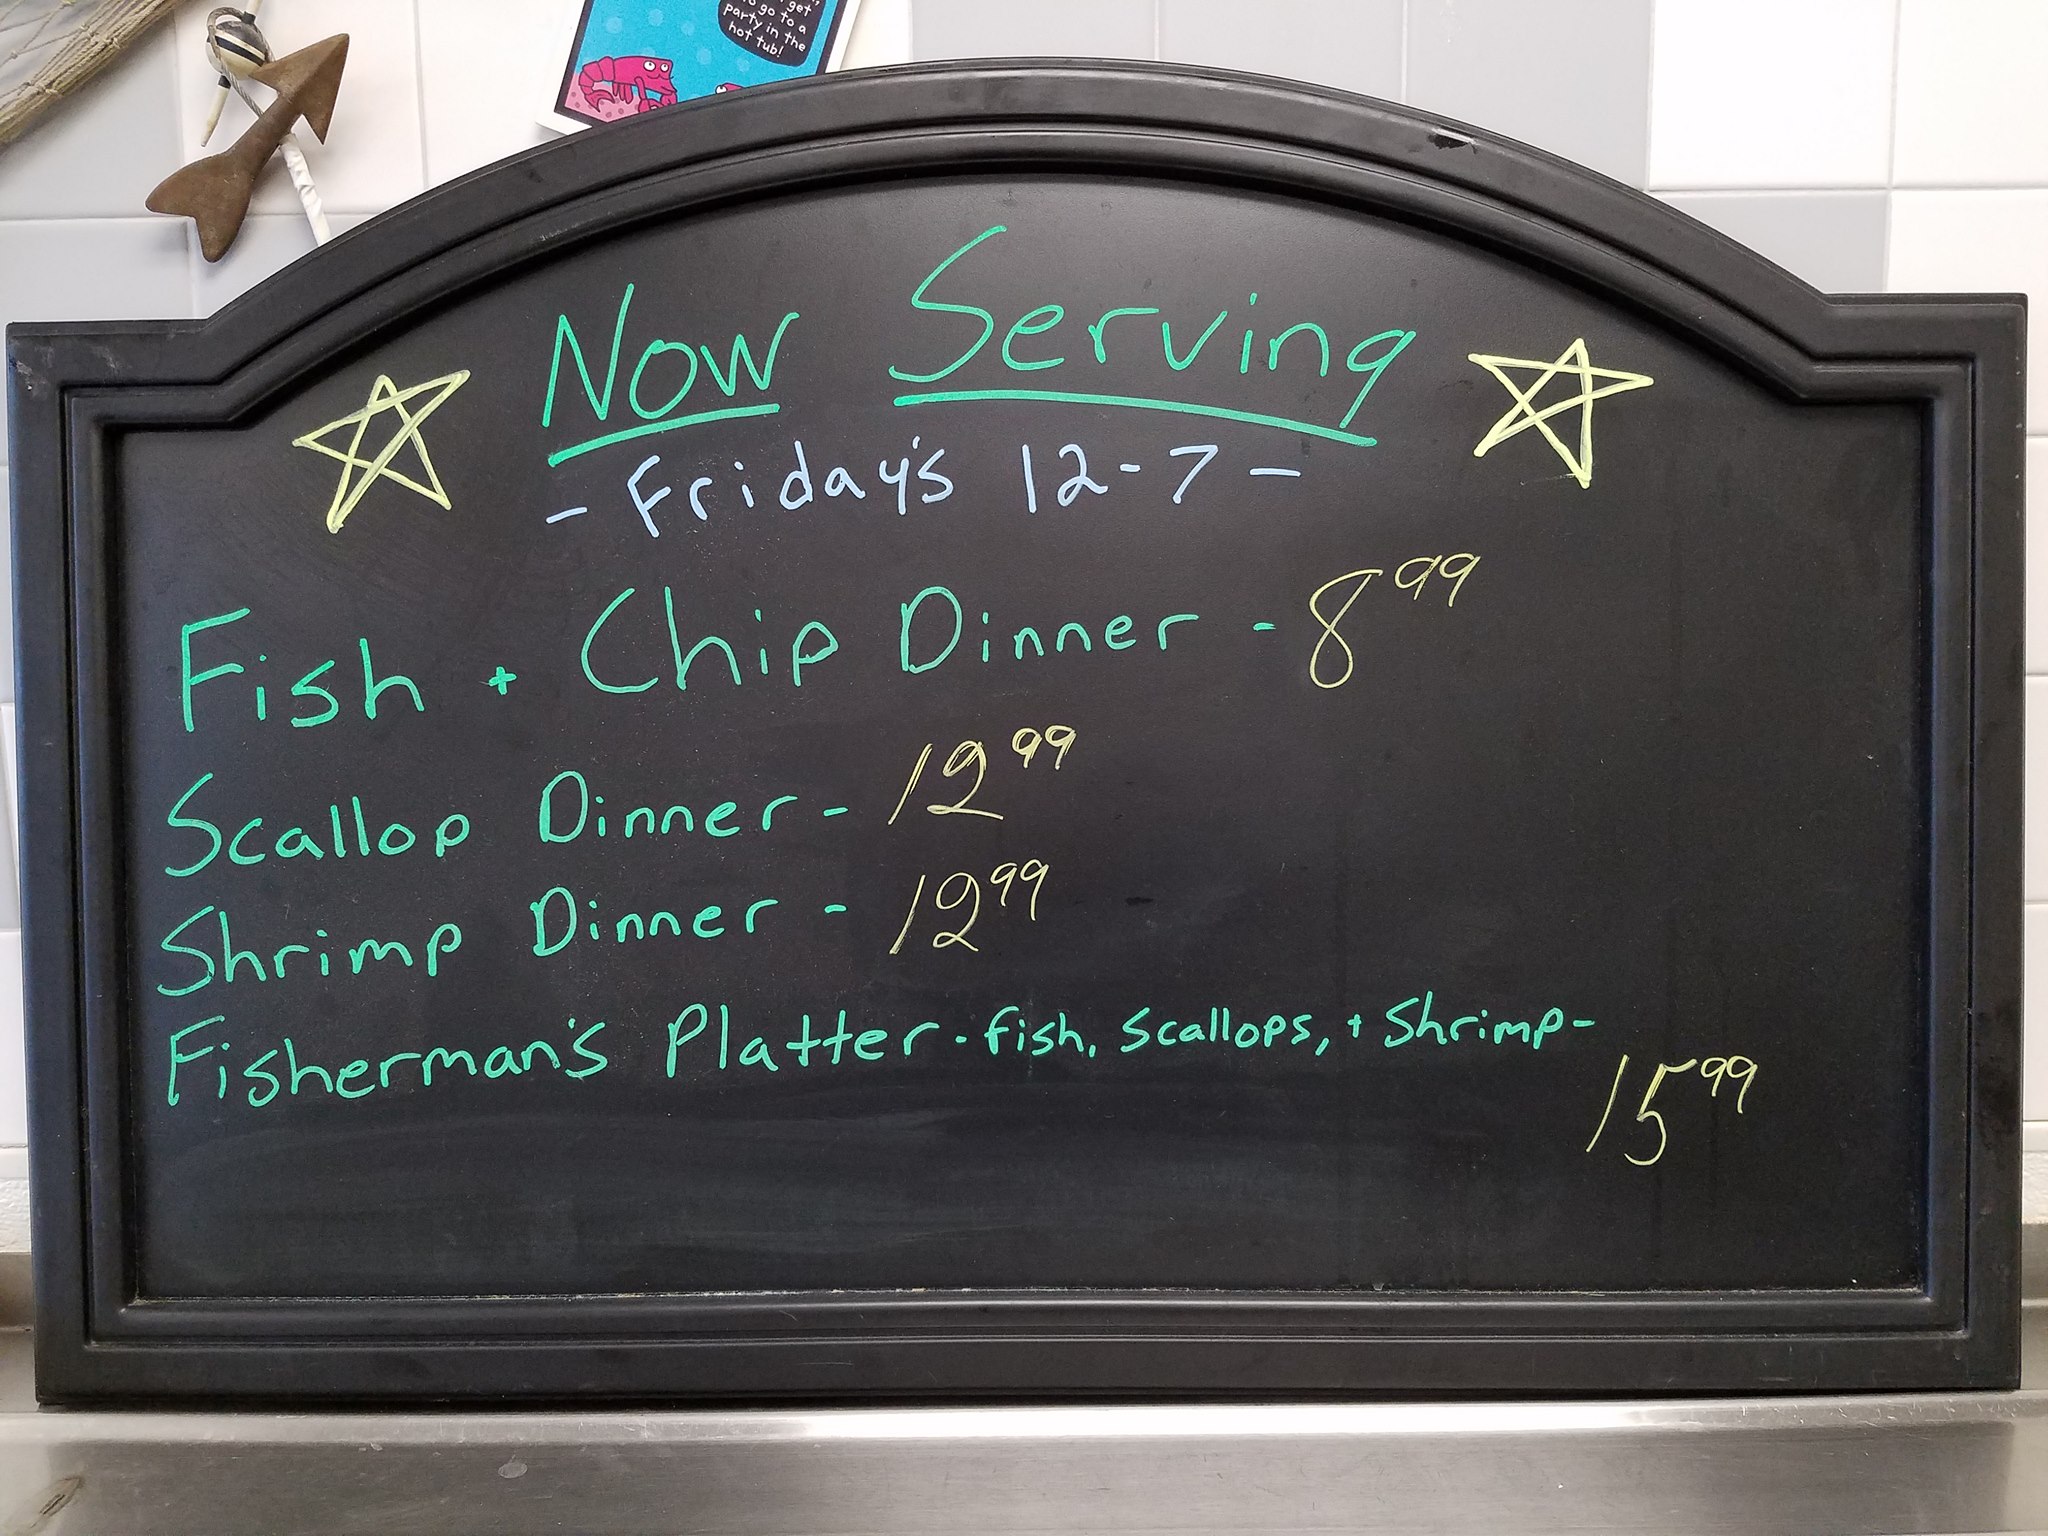 get
to go to a
party in the
hot tub!
Now Serving
- Friday's 12-7 -
Fish + Chip Dinner - 8 99
Scallop Dinner - 12 99
Shrimp Dinner - 12 99
Fisherman's Platter - fish, scallops, + Shrimp -
15 99